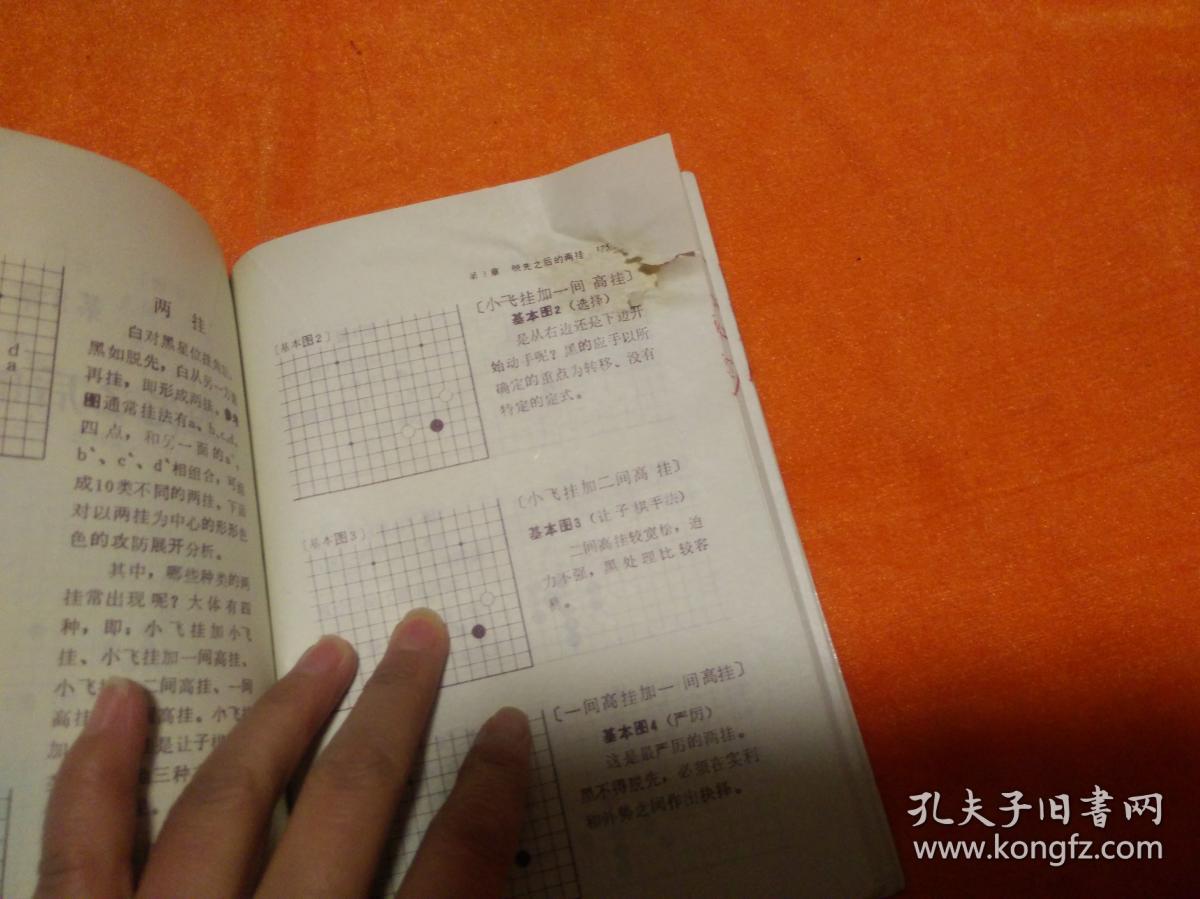 d
a
两 挂
白对黑星位挂角后，
黑如脱先，白从另一方
再挂，即形成两挂。
图通常挂法有a、b、c、d、
四点，和另一面的a`、
b`、c`、d`相组合，可
成10类不同的两挂。下面
对以两挂为中心的形形色
色的攻防展开分析。
其中，哪些种类的两
挂常出现呢？大体有四
种，即：小飞挂加小飞
挂、小飞挂加一间高挂、
小飞挂 二间高挂、一间
高挂 高挂。小飞挂
加 是让子棋
三种
章 脱先之后的两挂 175
〔小飞挂加一间 高挂〕
〔基本图2〕
基本图2（选择）
是从右边还是下边开
始动手呢？黑的应手以所
确定的重点为转移、没有
特定的定式。
〔小飞挂加二间高 挂〕
〔基本图3〕
基本图3（让子棋手法）
二间高挂较宽松，迫
力不强，黑处理比较容
易。
〔一间高挂加一 间高挂〕
基本图4（严厉）
这是最严厉的两挂。
黑不得脱先，必须在实利
和外势之间作出抉择。
孔夫子旧书网
www.kongfz.com